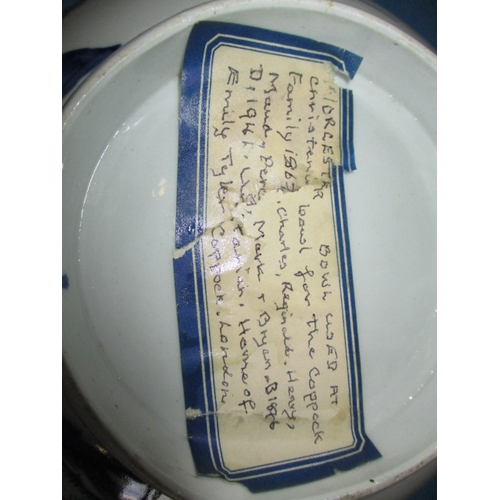 WORCESTER BOWL USED AT
Christening bowl for the Coppock
Family 1867, Charles, Reginald, Henry,
Maud, Perc, Mark + Bryan B1896
D, 1941, Home of
Emily Tyler Coppock. London